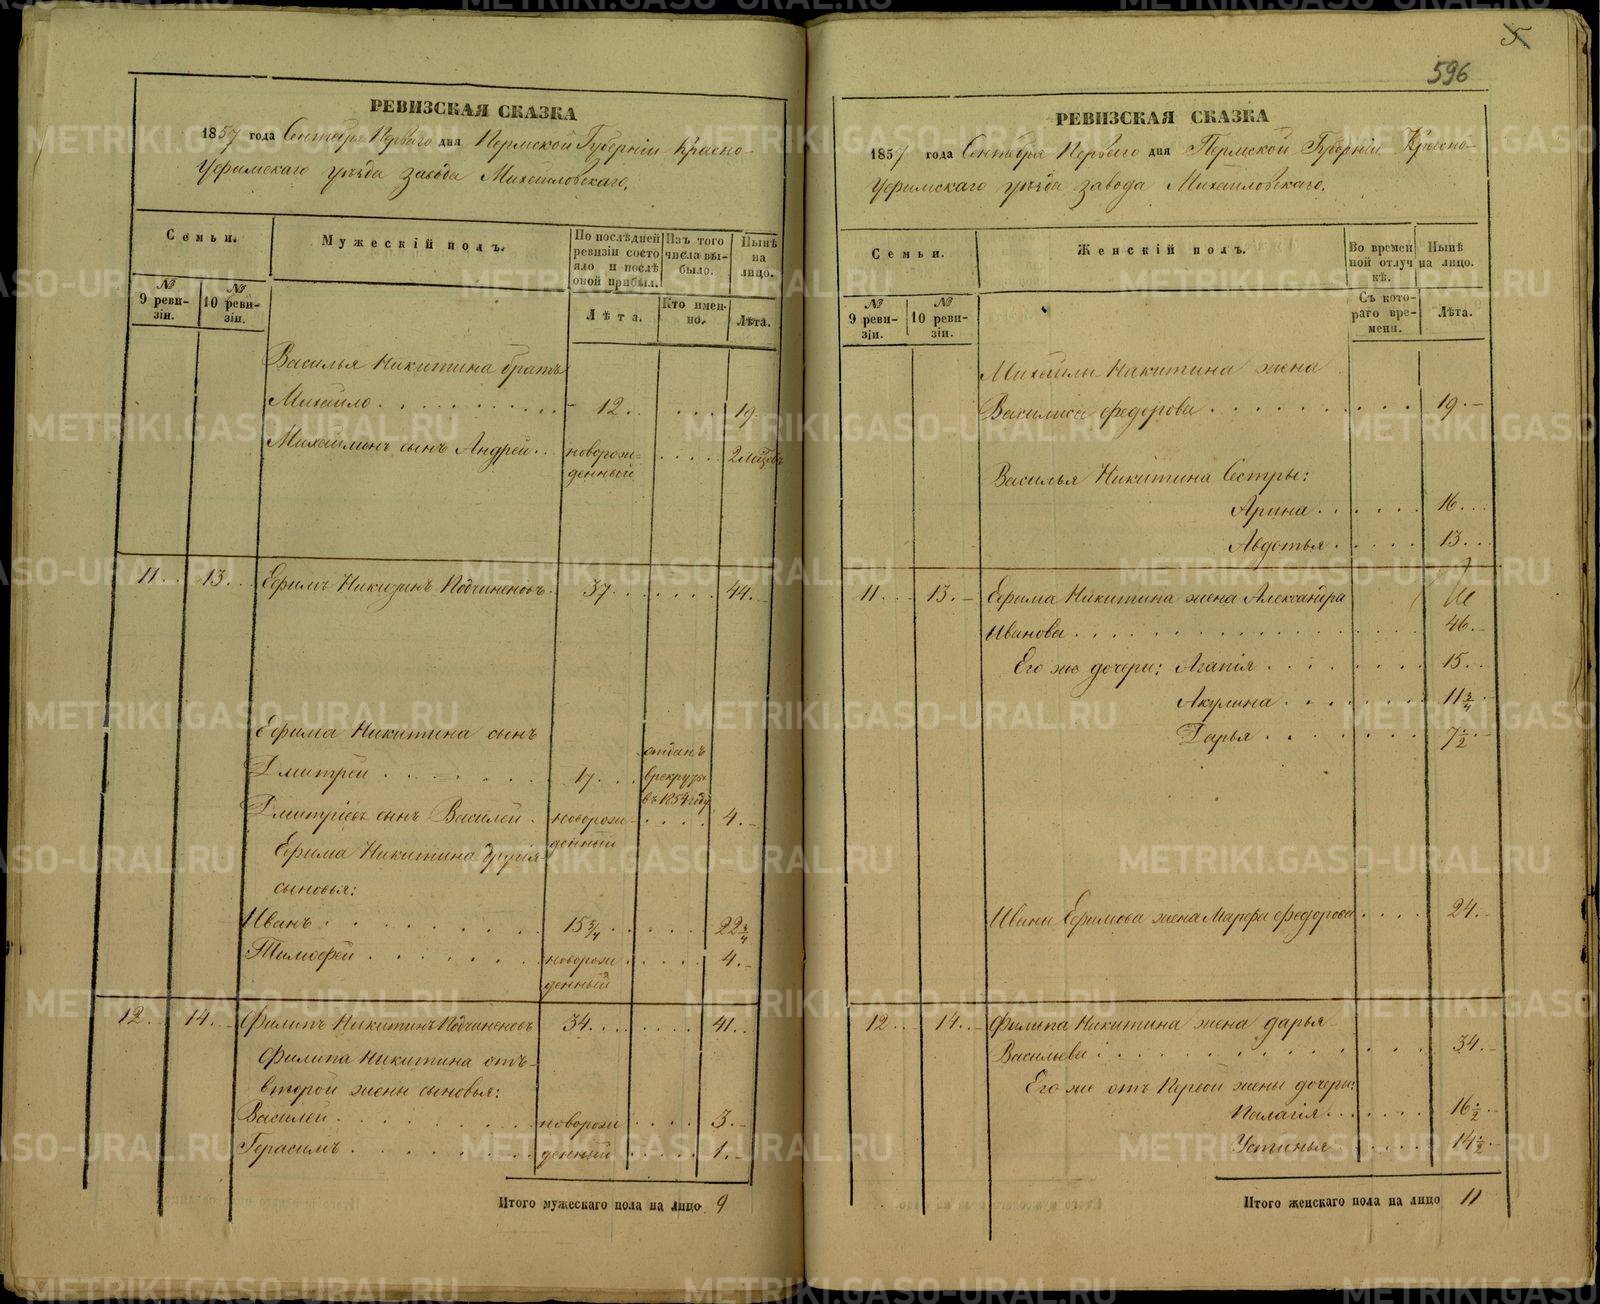 5
596
РЕВИЗСКАЯ СКАЗКА
1857 года Сентября Перваго дня Пермской Губерніи Красно-
Уфимскаго уѣзда завода Михайловскаго.
Семьи.
Мужескій полъ.
По послѣдней ревизіи состояло и послѣ оной прибыл.
Изъ того числа выбыло.
Нынѣ на лицо.
№ 9 ревизіи.
№ 10 ревизіи.
Лѣта.
Кто именно.
Лѣта.
Василья Никитина братъ
Михайло 12 19
Михайлинъ сынъ Андрей новорожденный
11 13 Ефимъ Никитинъ Подчиненовъ 37 44
Ефима Никитина сынъ
Дмитрей 17 отданъ в рекруты въ 1854 году
Дмитріевъ сынъ Василей новорожденный 4
Ефима Никитина другія
сыновья:
Иванъ 15 3/4 22 3/4
Тимофей новорожденный 4
12 14 Филипъ Никитинъ Подчиненовъ 34 41
Филипа Никитина отъ
второй жены сыновья:
Василей новорож 3
Герасимъ денный 1
Итого мужескаго пола на лицо 9
РЕВИЗСКАЯ СКАЗКА
1857 года Сентября Перваго дня Пермской Губерніи Красно-
Уфимскаго уѣзда завода Михайловскаго.
Семьи.
Женскій полъ.
Во временной отлучкѣ.
Нынѣ на лицо.
№ 9 ревизіи.
№ 10 ревизіи.
Съ котораго времени.
Лѣта.
Михайлы Никитина жена
Василиса Федорова 19
Василья Никитина Сестры:
Арина 16
Авдотья 13
11 13 Ефима Никитина жена Александра
Иванова 46
Его же дочери: Агапія 15
Акулина 11 3/4
Дарья 7 1/2
Ивана Ефимова жена Марфа Федорова 24
12 14 Филипа Никитина жена дарья
Васильева 34
Его же отъ Первой жены дочери:
Палагія 16 1/2
Устинья 14 1/2
Итого женскаго пола на лицо 11
METRIKI.GASO-URAL.RU